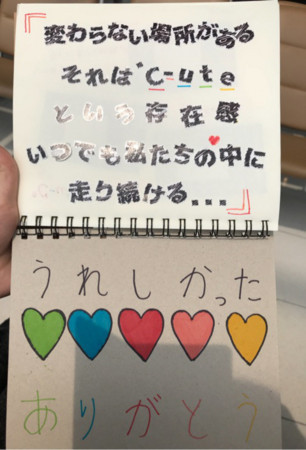 変わらない場所がある
それは"C-ute
という存在感
いつでも私たちの中に
走り続ける...
うれしかった
ありがとう